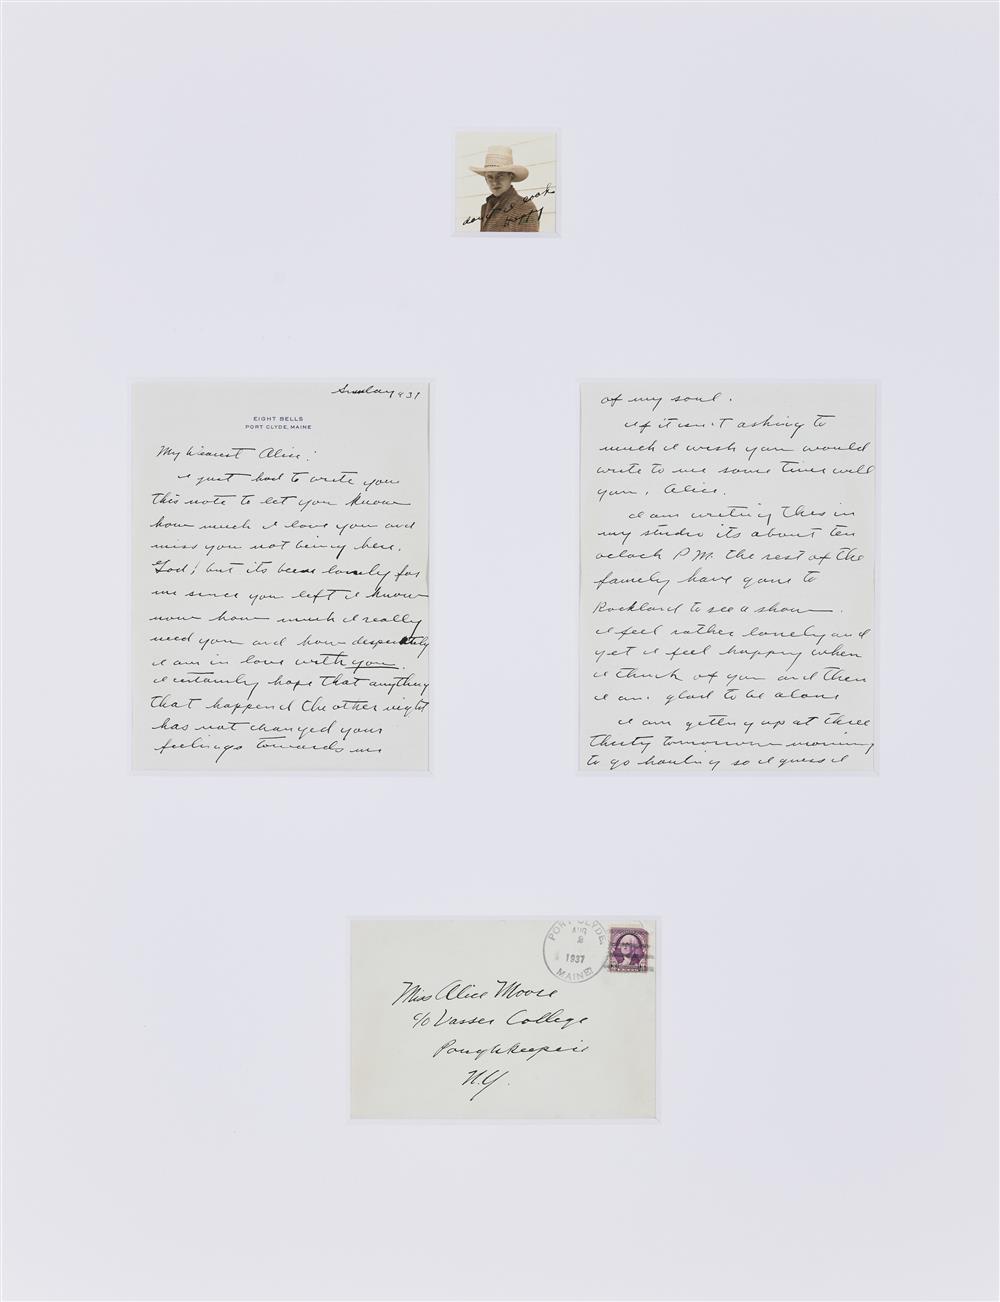 don't I look
happy
Sunday 1931
EIGHT BELLS
PORT CLYDE, MAINE
My Dearest Alice!
I just had to write you
this note to let you know
how much I love you and
miss you not being here.
God! but its been lonely for
me since you left I know
now how much I really
need you and how desperately
I am in love with you.
I certainly hope that anything
that happened the other night
has not changed your
feelings towards me
of my soul.
If it isn't asking to
much I wish you would
write to me some time will
you, Alice.
I am writing this in
my studio its about ten
oclock P.M. the rest of the
family have gone to
Rockland to see a show.
I feel rather lonely and
yet I feel happy when
I think of you and then
I am glad to be alone
I am getting up at three
thirty tomorrow morning
to go hauling so I guess I
PORT CLYDE,
AUG
2
1937
MAINE
Miss Alice Moore
c/o Vasser College
Poughkeepsie
N.Y.